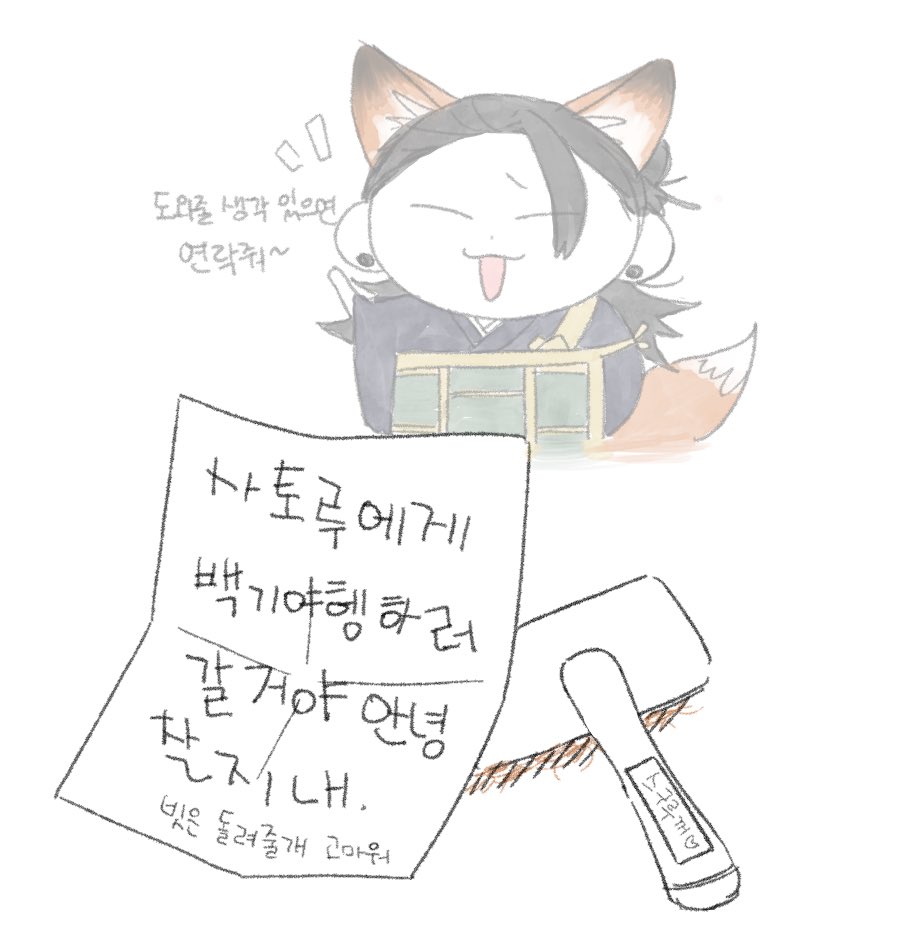 도와줄 생각 있으면
연락줘~
사토루에게
백기야행하러
갈거야 안녕
잘지내.
빗은 돌려줄개 고마워
스구루꺼♡